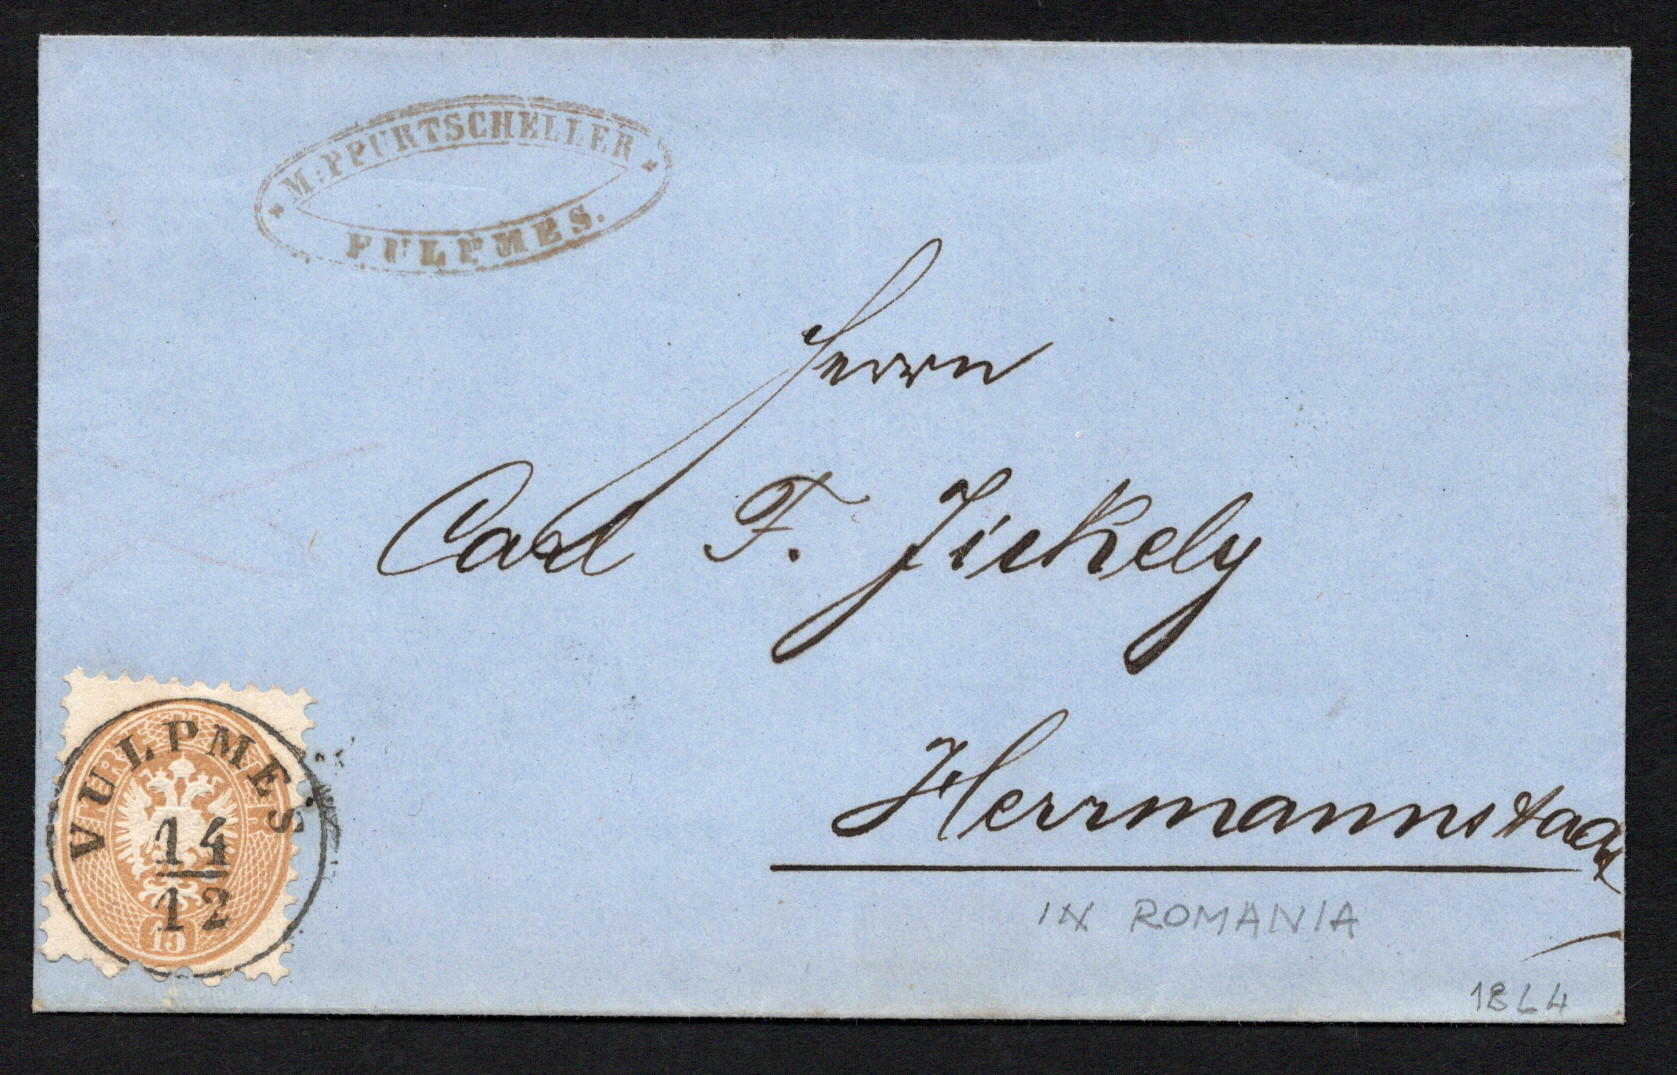 M: PPURTSCHELLER
FULPMES.
Herrn
Carl F. Jickely
Herrmannstadt
IN ROMANIA
1864
VULPMES
14
12
15